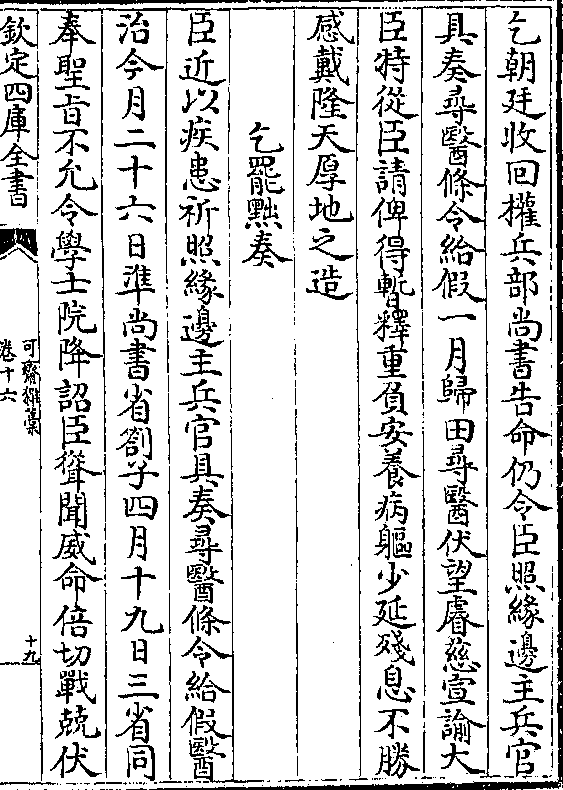 乞朝廷收回權兵部尚書告命仍令臣照緣邊主兵官
具奏尋醫條令給假一月歸田尋醫伏望睿慈宣諭大
臣特從臣請俾得暫釋重負安養病軀少延殘息不勝
感戴隆天厚地之造
乞罷黜奏
臣近以疾患祈照緣邊主兵官具奏尋醫條令給假醫
治今月二十六日準尚書省劄子四月十九日三省同
奉聖旨不允令學士院降詔臣聳聞威命倍切戰兢伏
欽定四庫全書
可齋雜藁
卷十六
十九